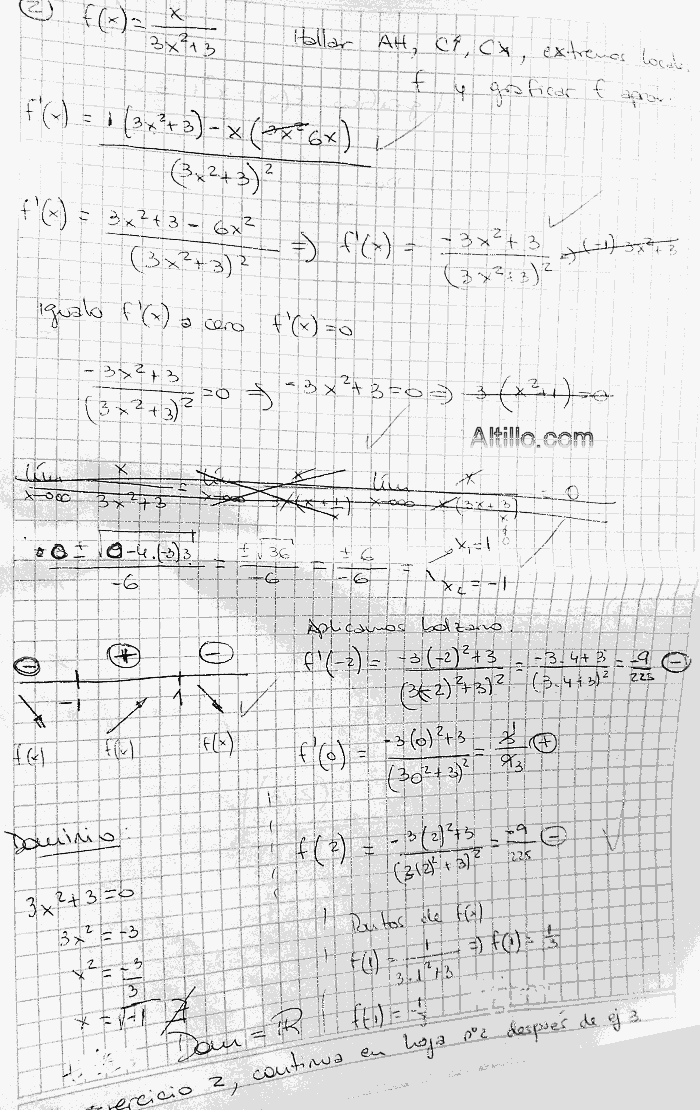 2) f(x) = x / (3x²+3) Hallar AH, C↑, C↓, extremos locales
f y graficar f aprox.
f'(x) = 1(3x²+3) - x(6x) / (3x²+3)²
f'(x) = 3x²+3 - 6x² / (3x²+3)² => f'(x) = -3x²+3 / (3x²+3)²
igualo f'(x) a cero f'(x)=0
-3x²+3 / (3x²+3)² = 0 => -3x²+3=0 => 3(x²+1)=0
Altillo.com
lím x→∞ x / 3x²+3 = = 0
0 ± √0-4.(-3)3 / -6 = ±√36 / -6 = ±6 / -6 = x₁=1
x₂=-1
Aplicamos bolzano.
⊖ ⊕ ⊖
-1 1
f(x) f(x) f(x)
f'(-2) = -3(-2)²+3 / (3(-2)²+3)² = -3.4+3 / (3.4+3)² = -9 / 225 ⊖
f'(0) = -3(0)²+3 / (3.0²+3)² = 3 / 9 3 ⊕
f(2) = -3(2)²+3 / (3(2)²+3)² = -9 / 225 ⊖
Dominio:
3x²+3=0
3x²=-3
x²=-3/3
x=√-1 ∄
Dom = ℝ
Puntos de f(x)
f(1) = 1 / 3.1²+3 => f(1) = 1/3
f(-1) = 1/3
ejercicio 2, continua en hoja nº2 después de ej 3